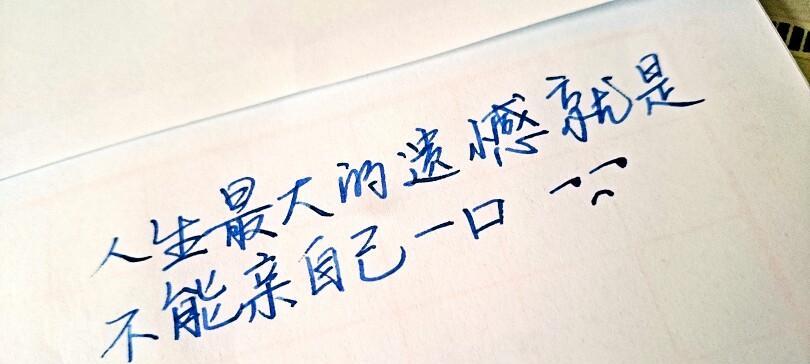 人生最大的遗憾就是
不能亲自己一口